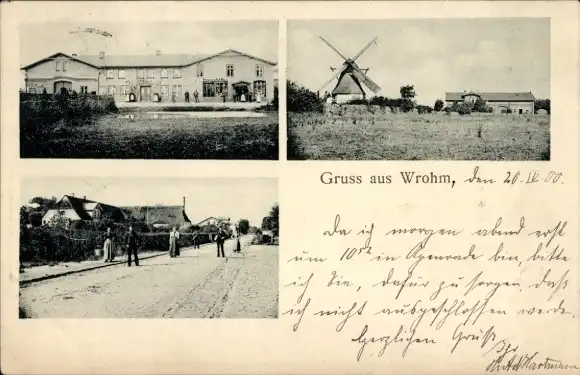 Gruss aus Wrohm, den 20.IV.00.
Da ich morgen abend erst
um 10 52 in Apenrade bin, bitte
ich Sie, dafür zu sorgen, daß
ich nicht ausgeschlossen werde.
Herzlichen Gruß
Ihr
Hartmann